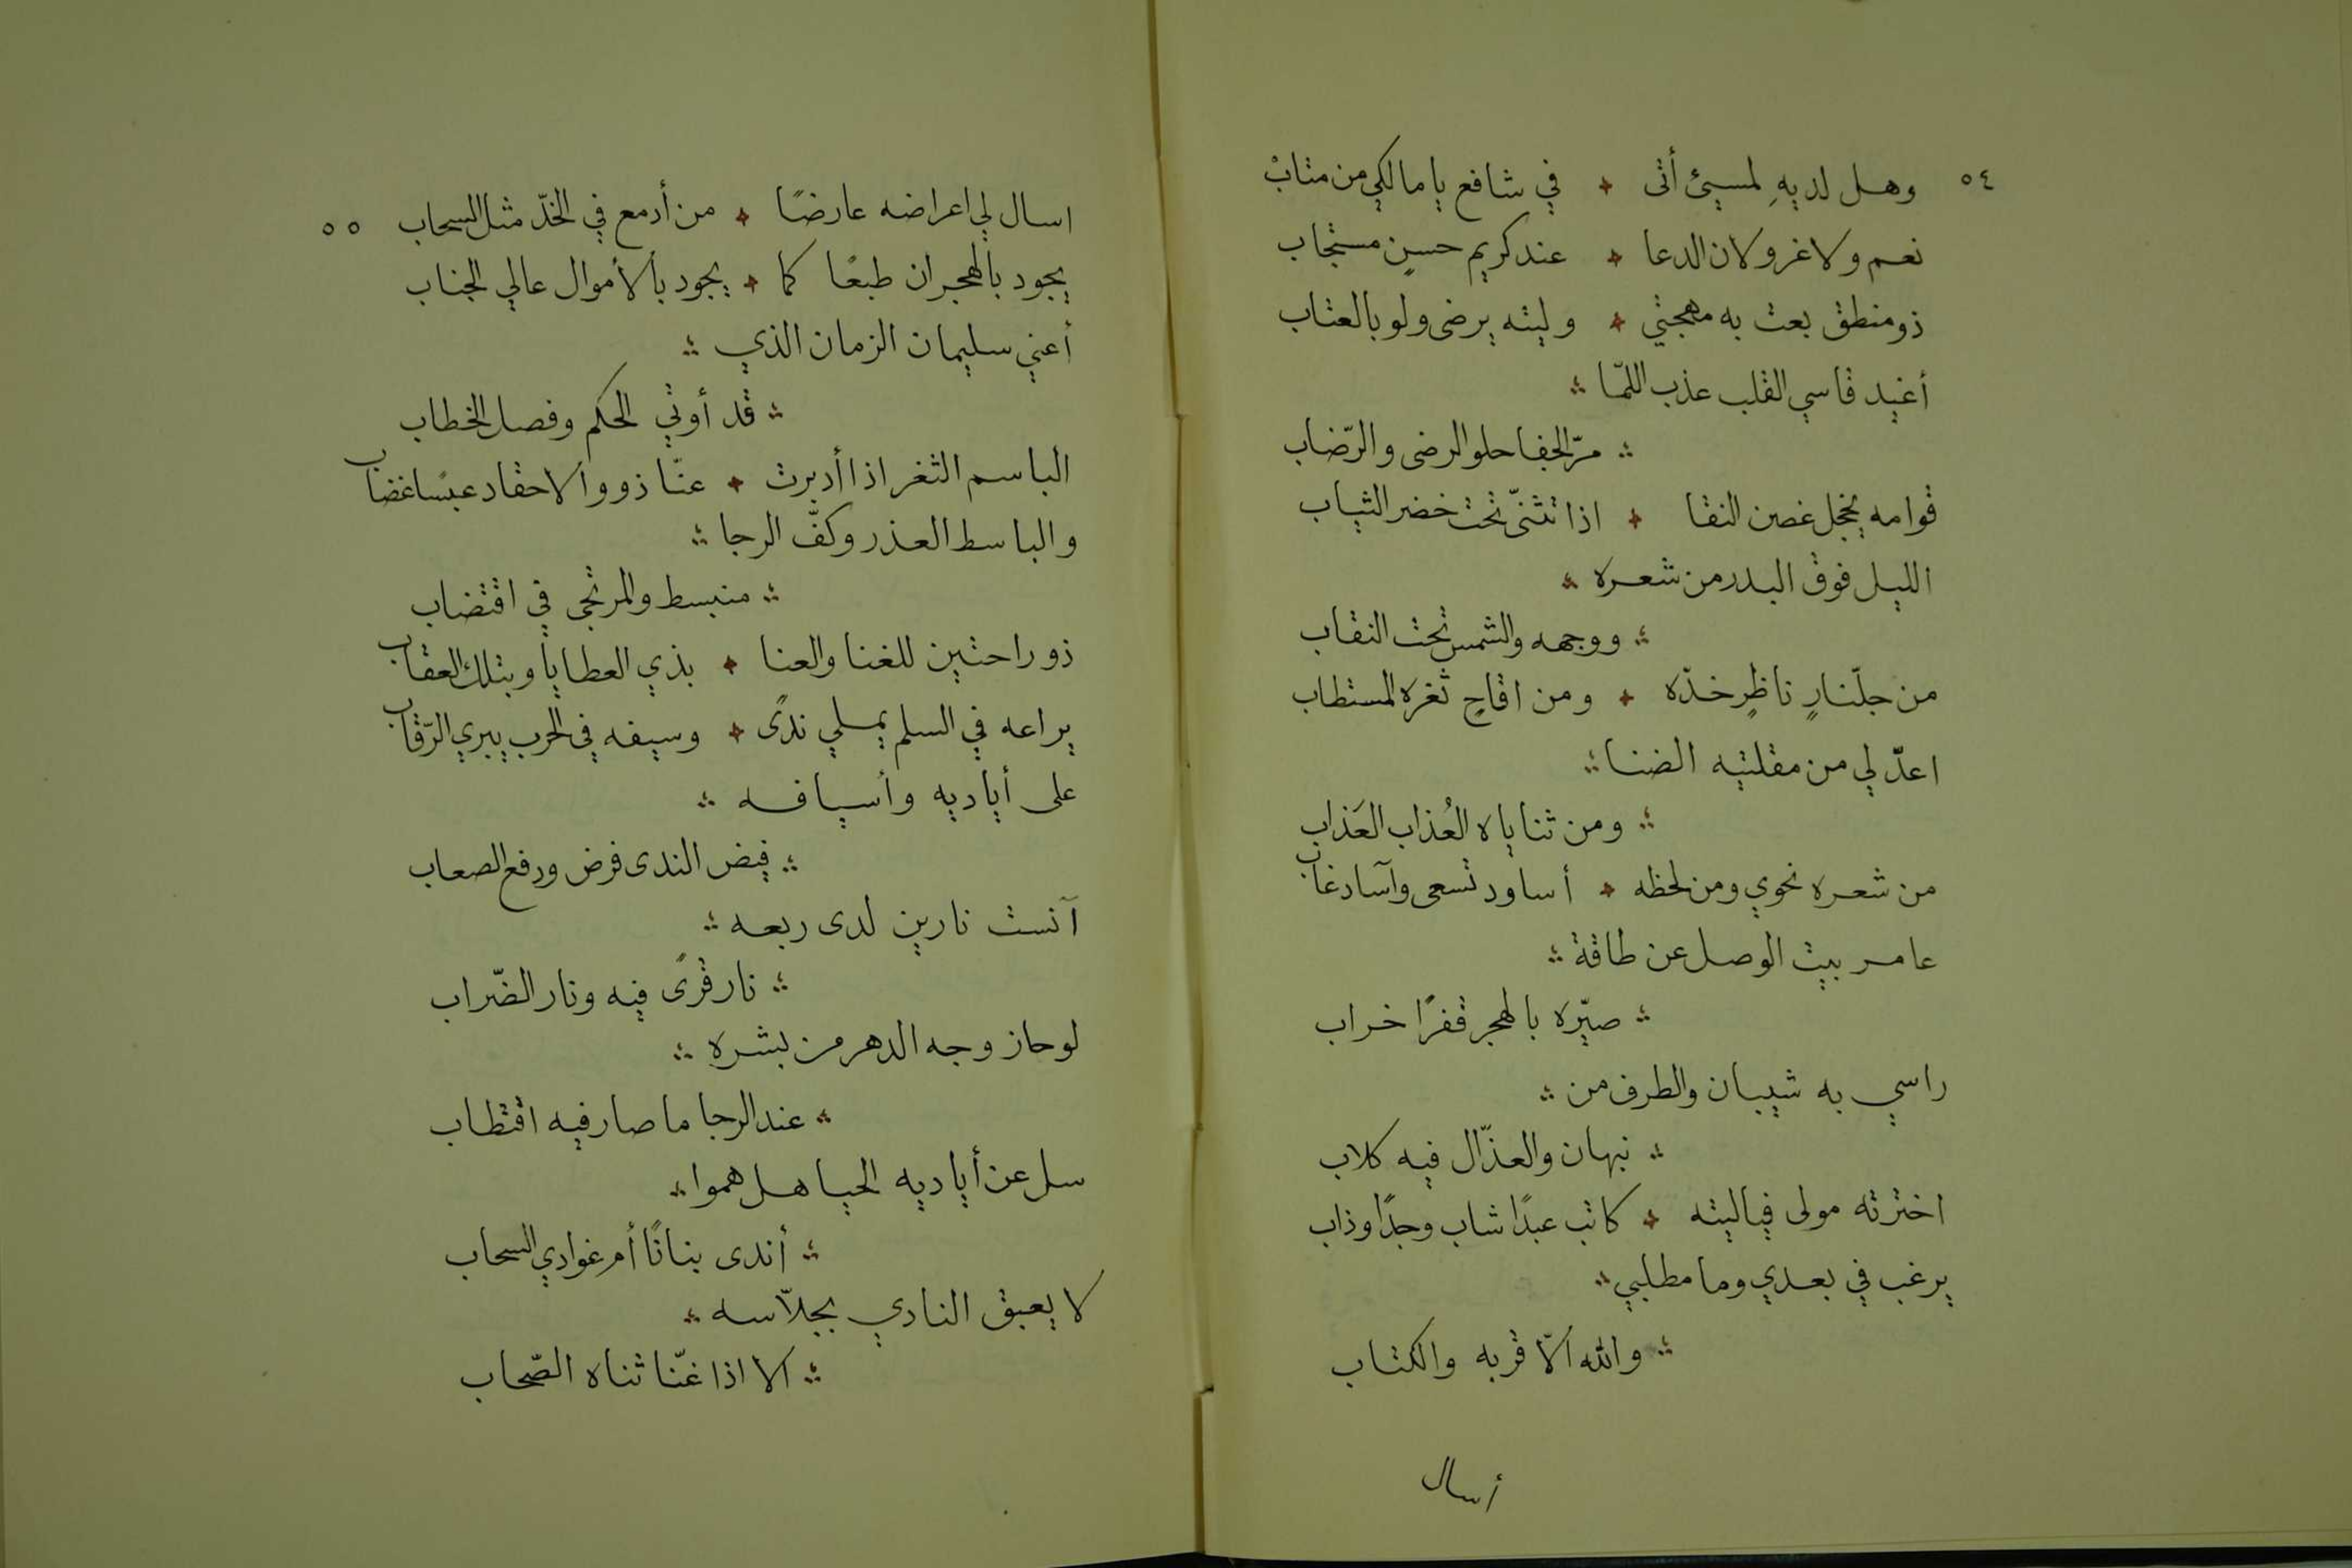 ٥٤
وهل لديهِ لمسيئ أتى ✦ في شافع يا مالكي من متابْ
نعم ولا غرو لان الدعا ✦ عند كريم حسنٍ مستجاب
ذو منطق بعت به مهجتي ✦ وليته يرضى ولو بالعتاب
أغيد قاسي القلب عذب اللمّا ؞
؞ مرّ الجفا حلو الرضى والرّضاب
قوامه يخجل غصن النقا ✦ اذا تثنّى تحت خضر الثياب
الليل فوق البدر من شعره ؞
؞ ووجهه والشمس تحت النقاب
من جلّنارٍ ناظرٍ خدّه ✦ ومن اقاحٍ ثغره المستطاب
اعدّ لي من مقلتيه الضنا ؞
؞ ومن ثناياه العُذاب العَذاب
من شعره نحوي ومن لحظه ✦ أساود تسعى وآساد غاب
عامر بيت الوصل عن طاقة ؞
؞ صيّره بالهجر قفرًا خراب
راسي به شيبان والطرف من ؞
؞ نبهان والعذّال فيه كلاب
اخترته مولى فياليته ✦ كاتب عبدًا شاب وجدًا وذاب
يرغب في بعدي وما مطلبي ؞
؞ والله الّا قربه والكتاب
أسال
اسال لي اعراضه عارضًا ✦ من أدمع في الخدّ مثل السحاب ٥٥
يجود بالهجران طبعًا كما ✦ يجود بألأموال عالي الجناب
أعني سليمان الزمان الذي ؞
؞ قد أوتي الحكم وفصل الخطاب
الباسم الثغر اذا أدبرت ✦ عنّا ذووا الاحقاد عبسًا غضاب
والباسط العذر وكفّ الرجا ؞
؞ منبسط والمرتجى في اقتضاب
ذو راحتين للغنا والعنا ✦ بذي العطايا وبتلك العقاب
يراعه في السلم يملي ندًى ✦ وسيفه في الحرب يبري الرّقاب
على أياديه وأسيافه ؞
؞ فيض الندى فرض ودفع الصعاب
آنست نارين لدى ربعه ؞
؞ نار قرًى فيه ونار الضّراب
لو حاز وجه الدهر من بشره ؞
؞ عند الرجا ما صار فيه اقتطاب
سل عن أياديه الحيا هل هموا ؞
؞ أندى بنانًا أم غوادي السحاب
لا يعبق النادي بجلّاسه ؞
؞ الا اذا غنّا ثناه الصّحاب